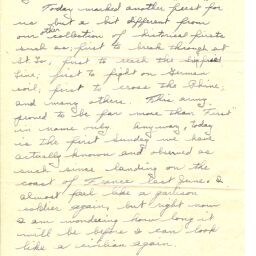 Today marked another first for
us but a bit different from
our other collection of historical firsts
such as; first to break through at
St Lo, first to reach the Siegfried
line; first to fight on German
soil; first to cross the Rhine,
and many others. This army
proved to be far more than "First"
in name only. Anyway, today
is the first Sunday we have
actually known and observed as
such since landing on the
coast of France last June. I
almost feel like a garrison
soldier again, but right now
I am wondering how long it
will be before I can look
like a civilian again.